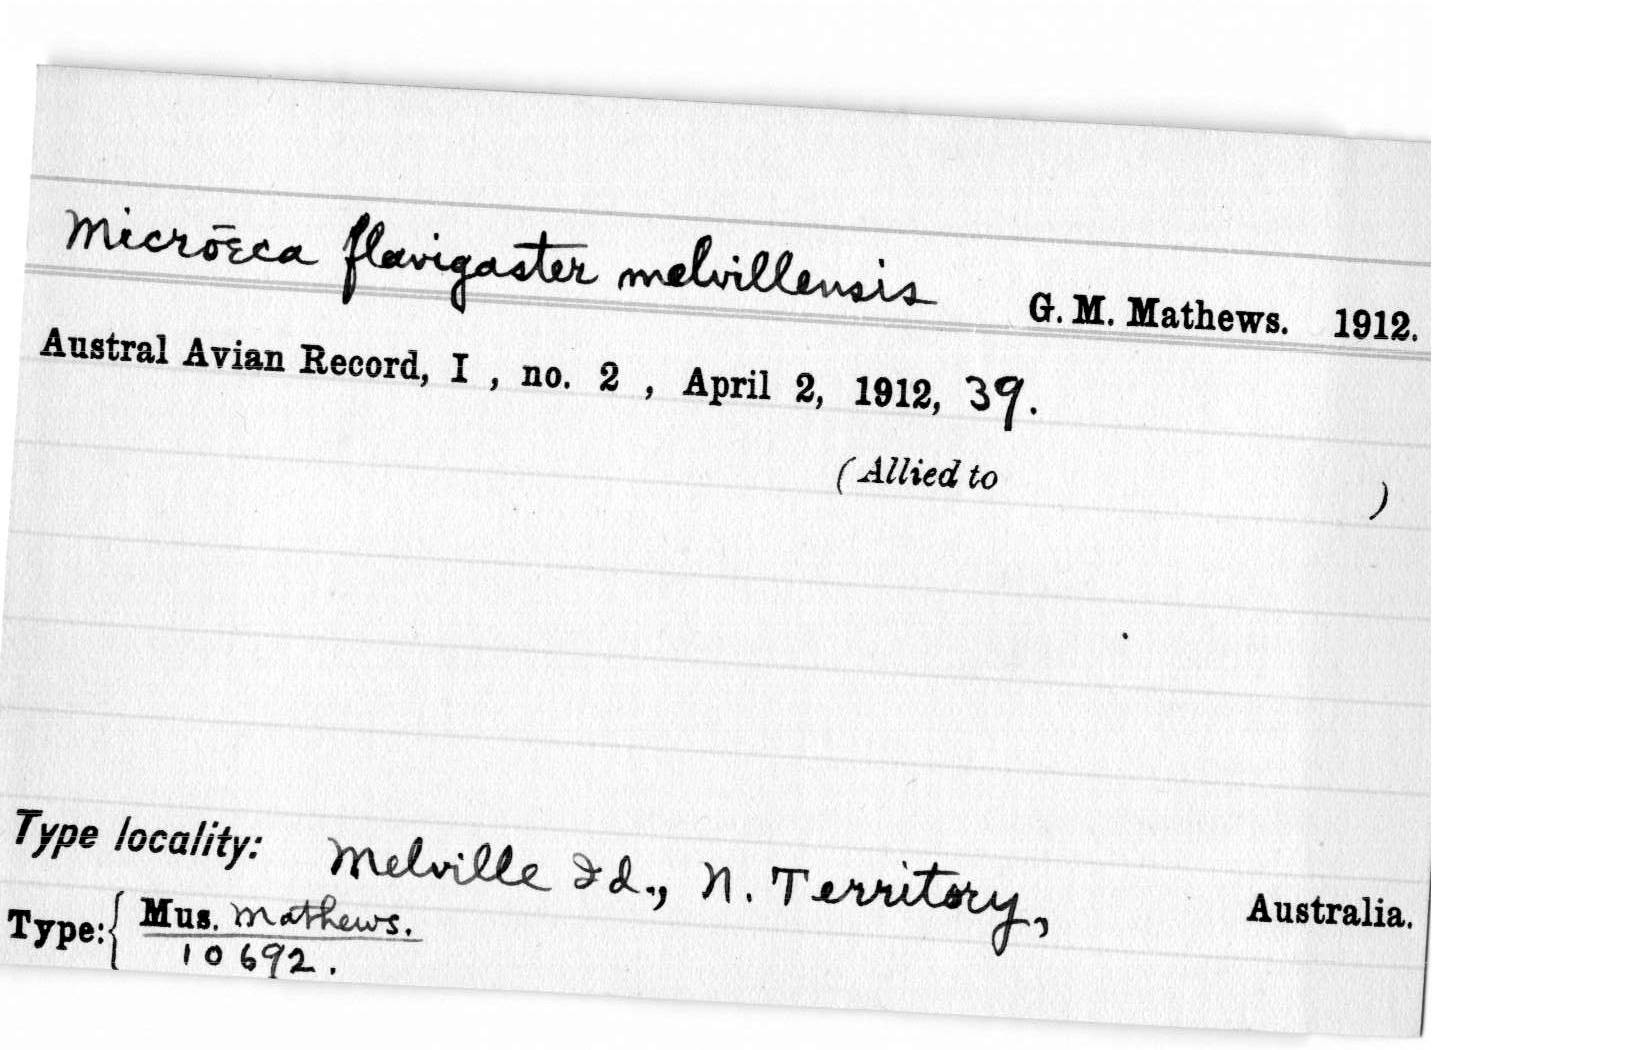 Microëca flavigaster melvillensis G. M. Mathews. 1912.
Austral Avian Record, I , no. 2 , April 2, 1912, 39.
(Allied to )
Type locality: Melville Id., N. Territory, Australia.
Type: { Mus. Mathews.
10692.